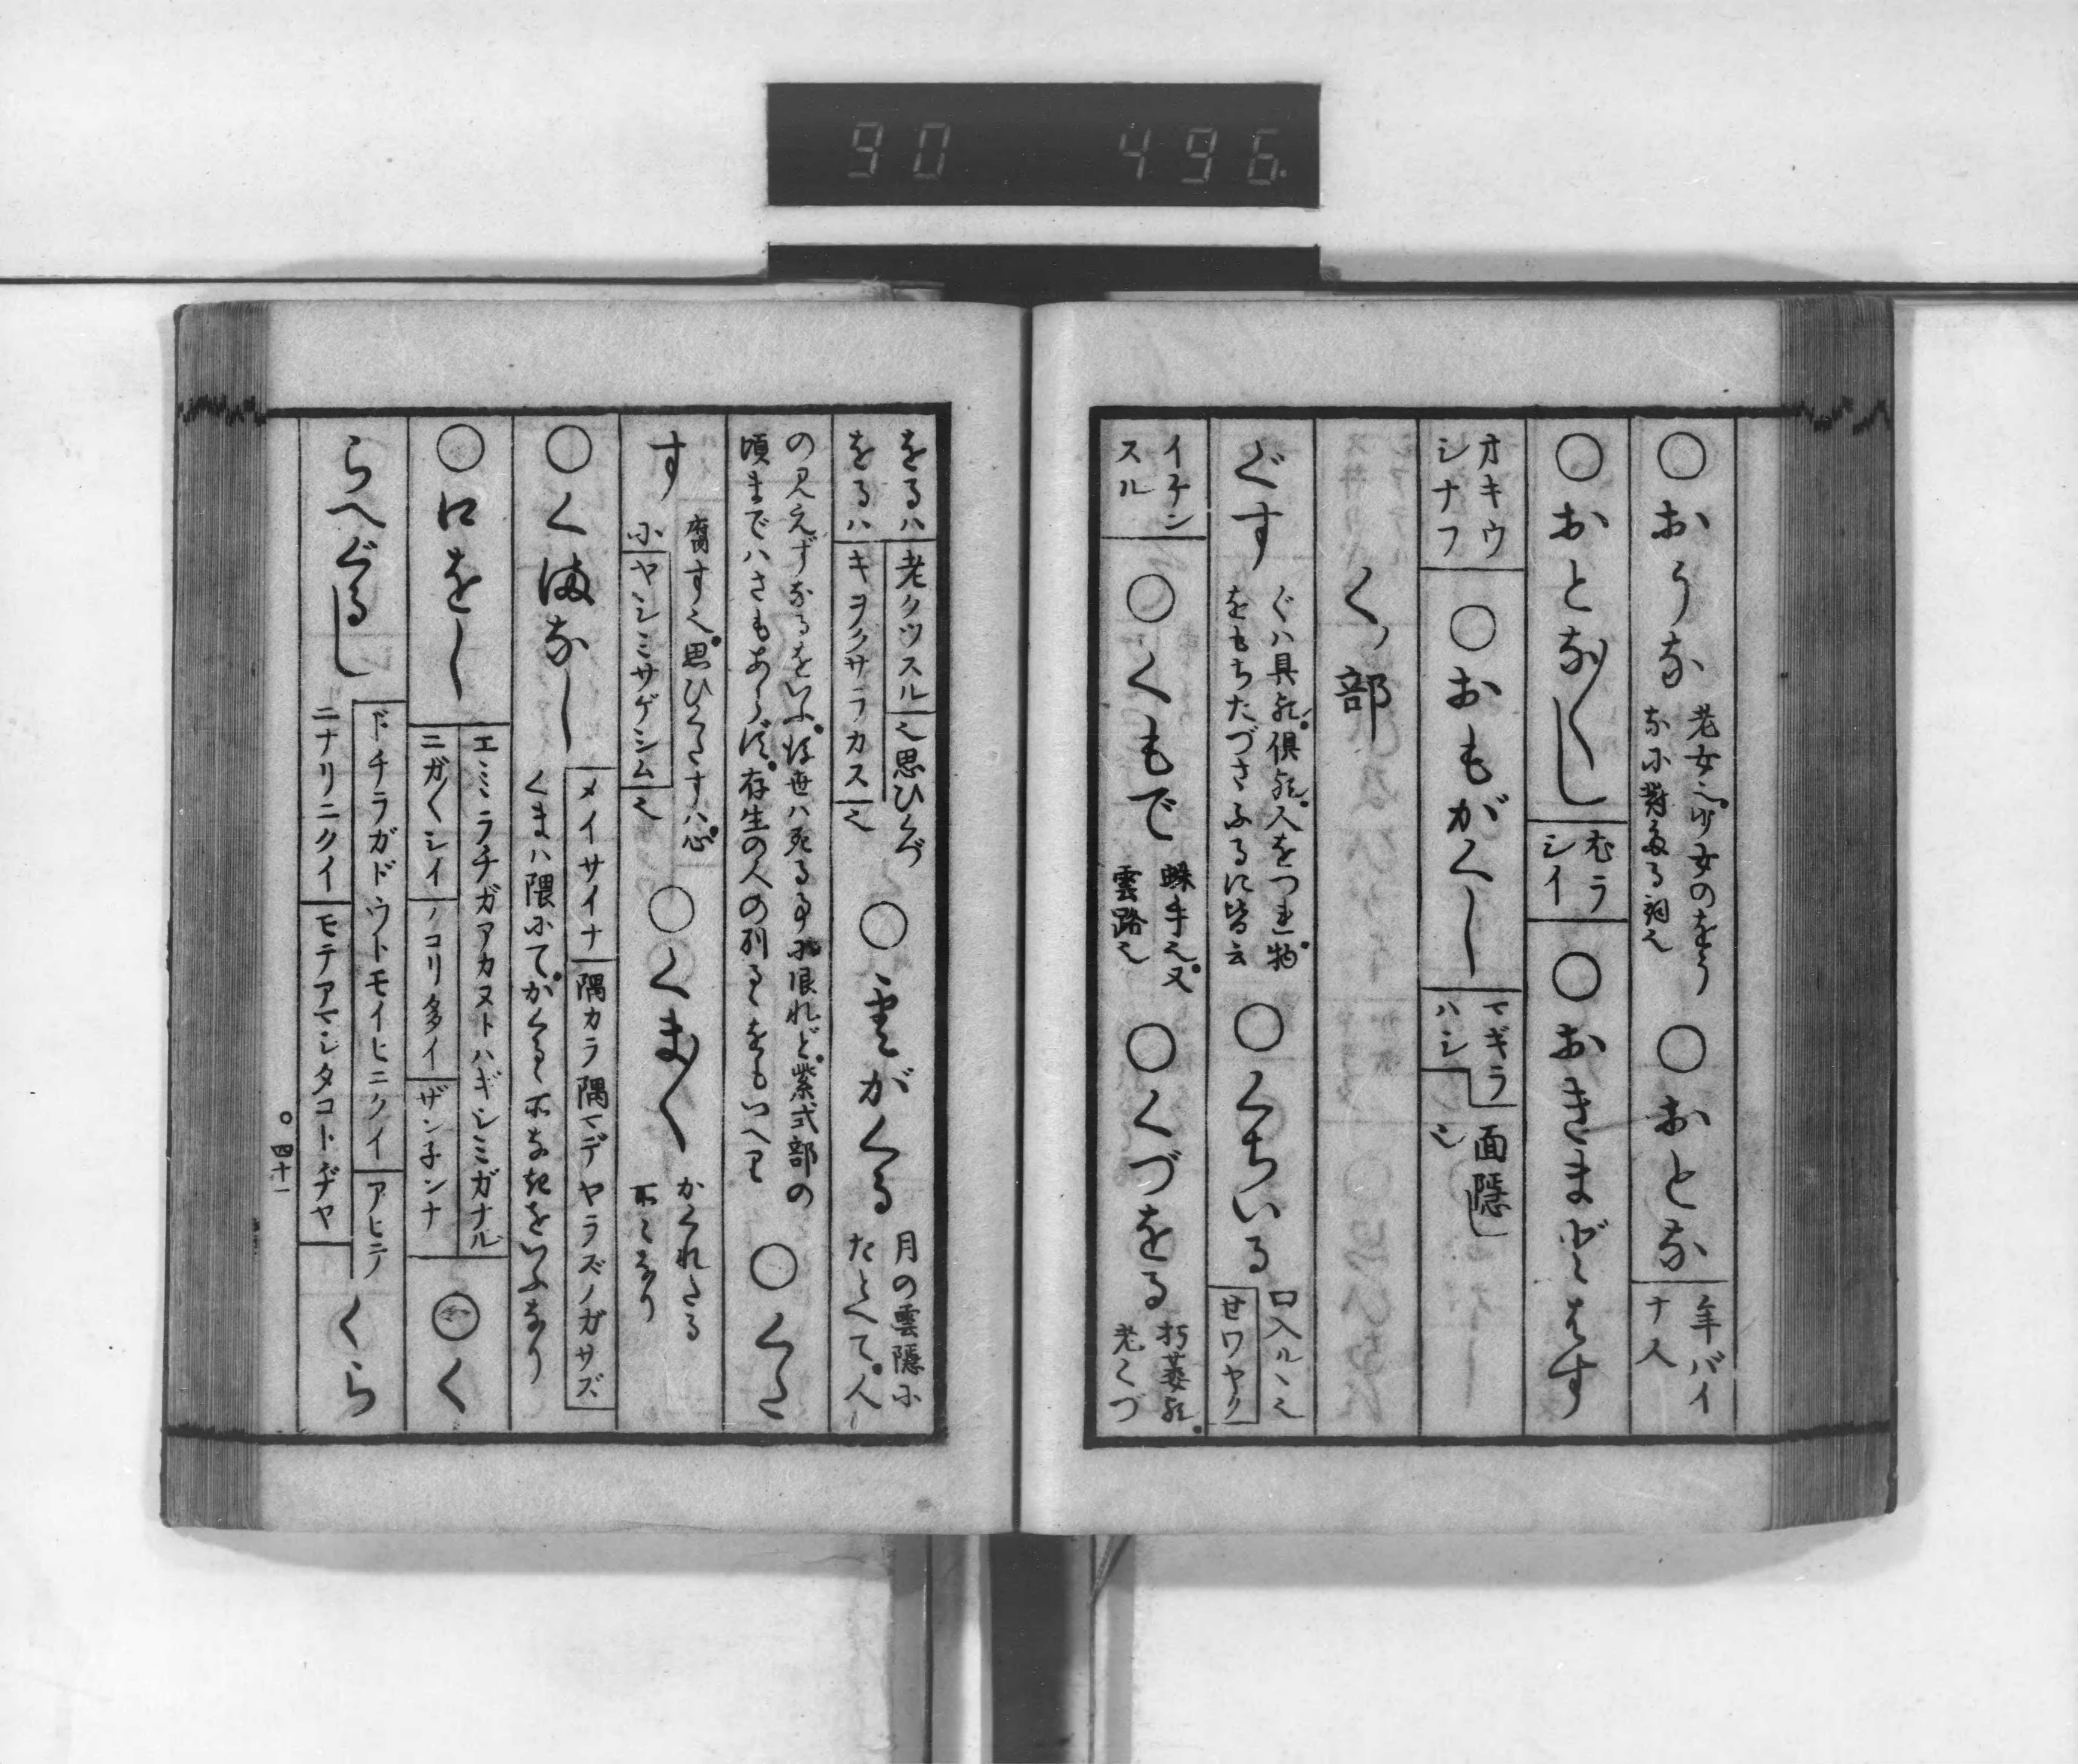 90 496.
○おうな 老女也。少女のをう
なに對する詞也 ○おとな 年バイ
ナ人
○おとな〳〵し ヲトナラ
シイ ○おきまどはす
オキウ
シナフ ○おもがくし マギラ
ハシ 面隠し
也
くノ部
ぐす ぐハ具也。倶也。人をつれ。物
をもちたづさふるに皆云 ○くちいる 口入ルヽ也
セワヤク
イケン
スル ○くもで 蛛手也。又
雲路也 ○くづをる 朽萎也。
老くづ
をるハ 老クツスル 也思ひくづ
をるハ キヲクサラカス 也 ○雲がくる 月の雲隠に
たとへて。人
の見えずなるをいふ。後世ハ死る事に限れど。紫式部の
頃までハさもあらず。存生の人の別るゝをもいへり ○くた
す 腐す也。思ひくたすハ心
に ヤシミサゲシム 也 ○くま〴〵 かくれたる
所々なり
○くまなし メイサイナ 隅カラ隅マデヤラズノガサズ
くまハ隈にて。かくるゝ所なきをいふなり
○口をし エミラチガアカヌトハギシミガナル
ニガ〳〵シイ ノコリ多イ ザン子ンナ ○く
らべぐるし ドチラガドウトモイヒニクイ アヒテ
ニナリニクイ モテアマシタコトヂヤ くら
○四十一